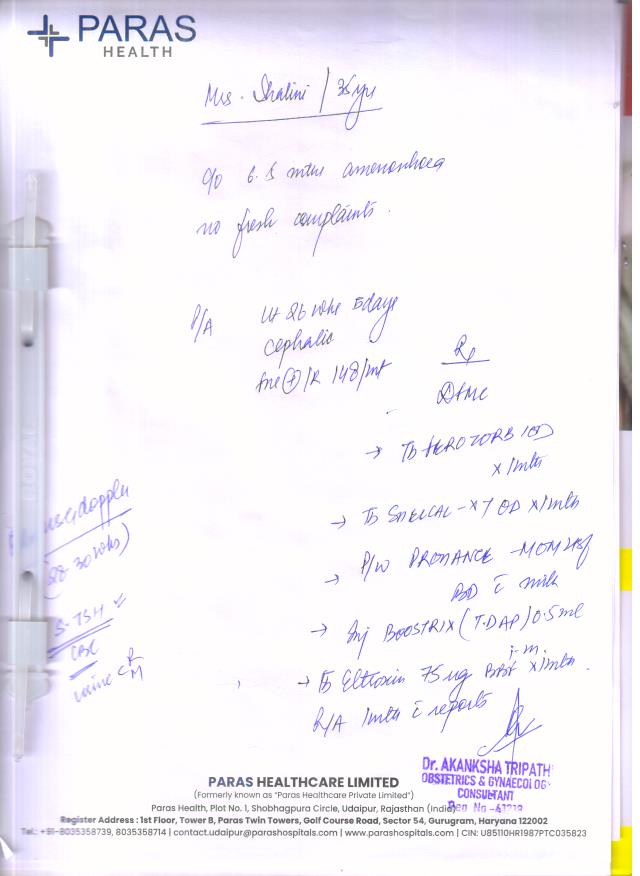 PARAS
HEALTH
Mrs. Shalini / 35 yrs
c/o 6.5 mths amenorrhoea
no fresh complaints.
P/A Ut 26 wks 5 days
Cephalic
/R 148/mt
Rx
→ Tb 1 OD
x 1 mth
→ Tb Shelcal-XT OD x 1 mth
→ P/w PROHANCE-MOM 2tsf
BD c milk
→ Inj BOOSTRIX (T.DAP) 0.5 ml
i.m.
→ Tb Eltroxin 75 ug BBF x 1 mth.
R/A 1 mth c reports
doppler
(28-30 wks)
S.TSH ✓
CBC
urine C R
M
Dr. AKANKSHA TRIPATH
OBSTETRICS & GYNAECOLOG
CONSULTANT
PARAS HEALTHCARE LIMITED
(Formerly known as "Paras Healthcare Private Limited")
Paras Health, Plot No. 1, Shobhagpura Circle, Udaipur, Rajasthan (India)
Register Address : 1st Floor, Tower B, Paras Twin Towers, Golf Course Road, Sector 54, Gurugram, Haryana 122002
Tel.: +91-8035358739, 8035358714 | contact.udaipur@parashospitals.com | www.parashospitals.com | CIN: U85110HR1987PTC035823